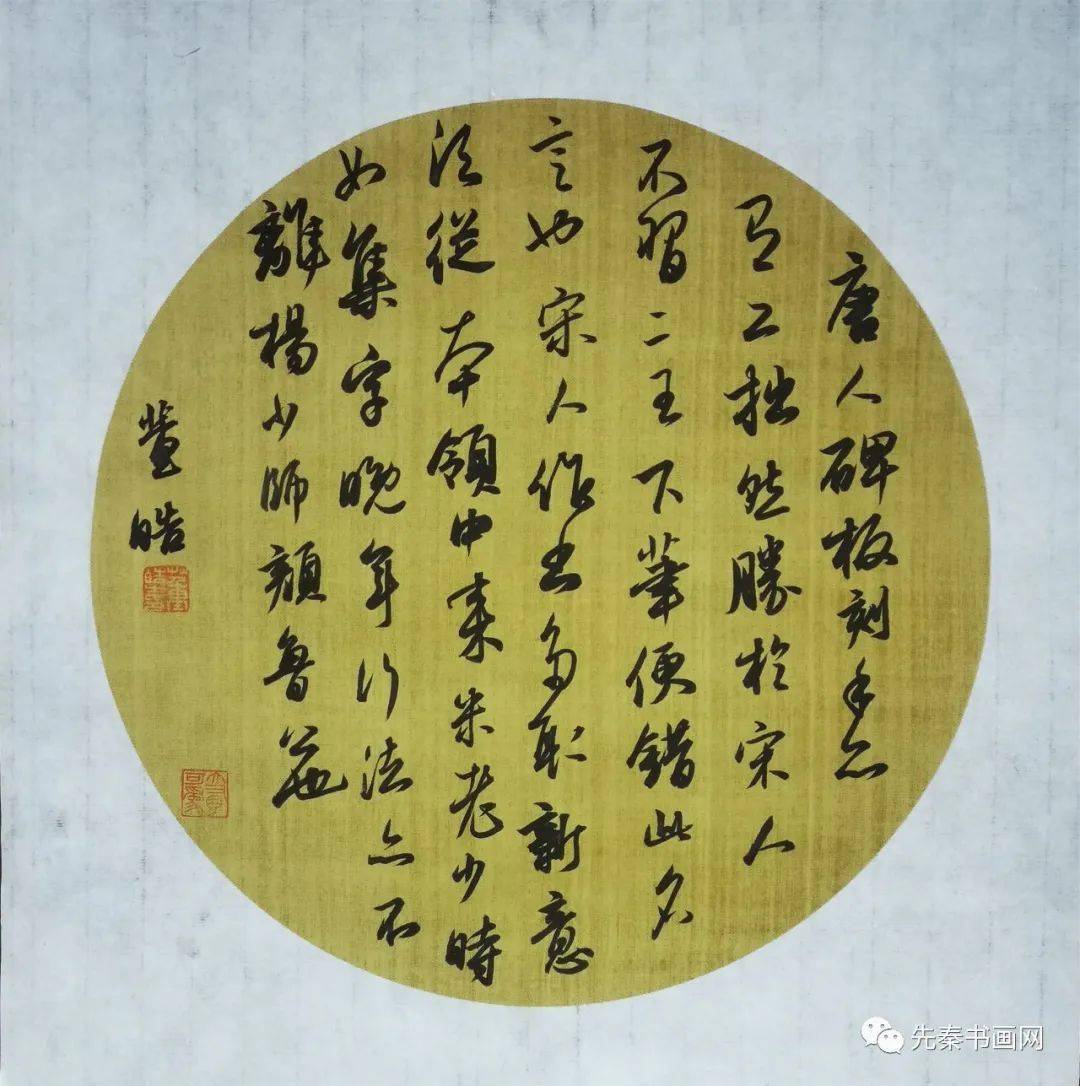 唐人碑板刻手亦
有工拙然勝於宋人
不習二王下筆便錯此名
言也宋人作書多取新意
須從本領中來米老少時
如集字晚年行法亦不
離楊少師顏魯公也
皓
先秦书画网